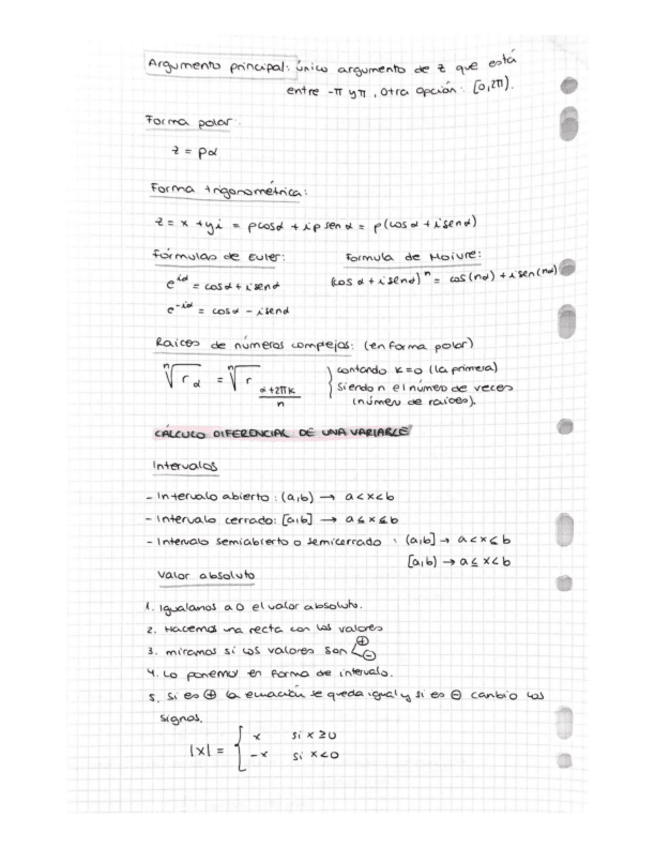 Argumento principal: único argumento de z que está
entre -π y π, otra opción: [0,2π).
Forma polar:
z = ρα
Forma trigonométrica:
z = x + yi = ρcosα + iρ senα = ρ(cosα + isenα)
Fórmulas de Euler: Formula de Moivre:
e^iα = cosα + isenα (cosα + isenα)^n = cos(nα) + isen(nα)
e^-iα = cosα - isenα
Raíces de números complejos: (en forma polar)
ⁿ√r_α = ⁿ√r_(α+2πk)/n } contando k=0 (la primera)
siendo n el número de veces
(número de raíces).
CÁLCULO DIFERENCIAL DE UNA VARIABLE
Intervalos
- Intervalo abierto: (a,b) → a<x<b
- Intervalo cerrado: [a,b] → a≤x≤b
- Intervalo semiabierto o semicerrado: (a,b] → a<x≤b
[a,b) → a≤x<b
Valor absoluto
1. Igualamos a 0 el valor absoluto.
2. Hacemos una recta con los valores
3. miramos si los valores son < ⊕ ⊖
4. Lo ponemos en forma de intervalo.
5. Si es ⊕ la ecuación se queda igual y si es ⊖ cambio los
signos.
|x| = { x si x≥0
-x si x<0